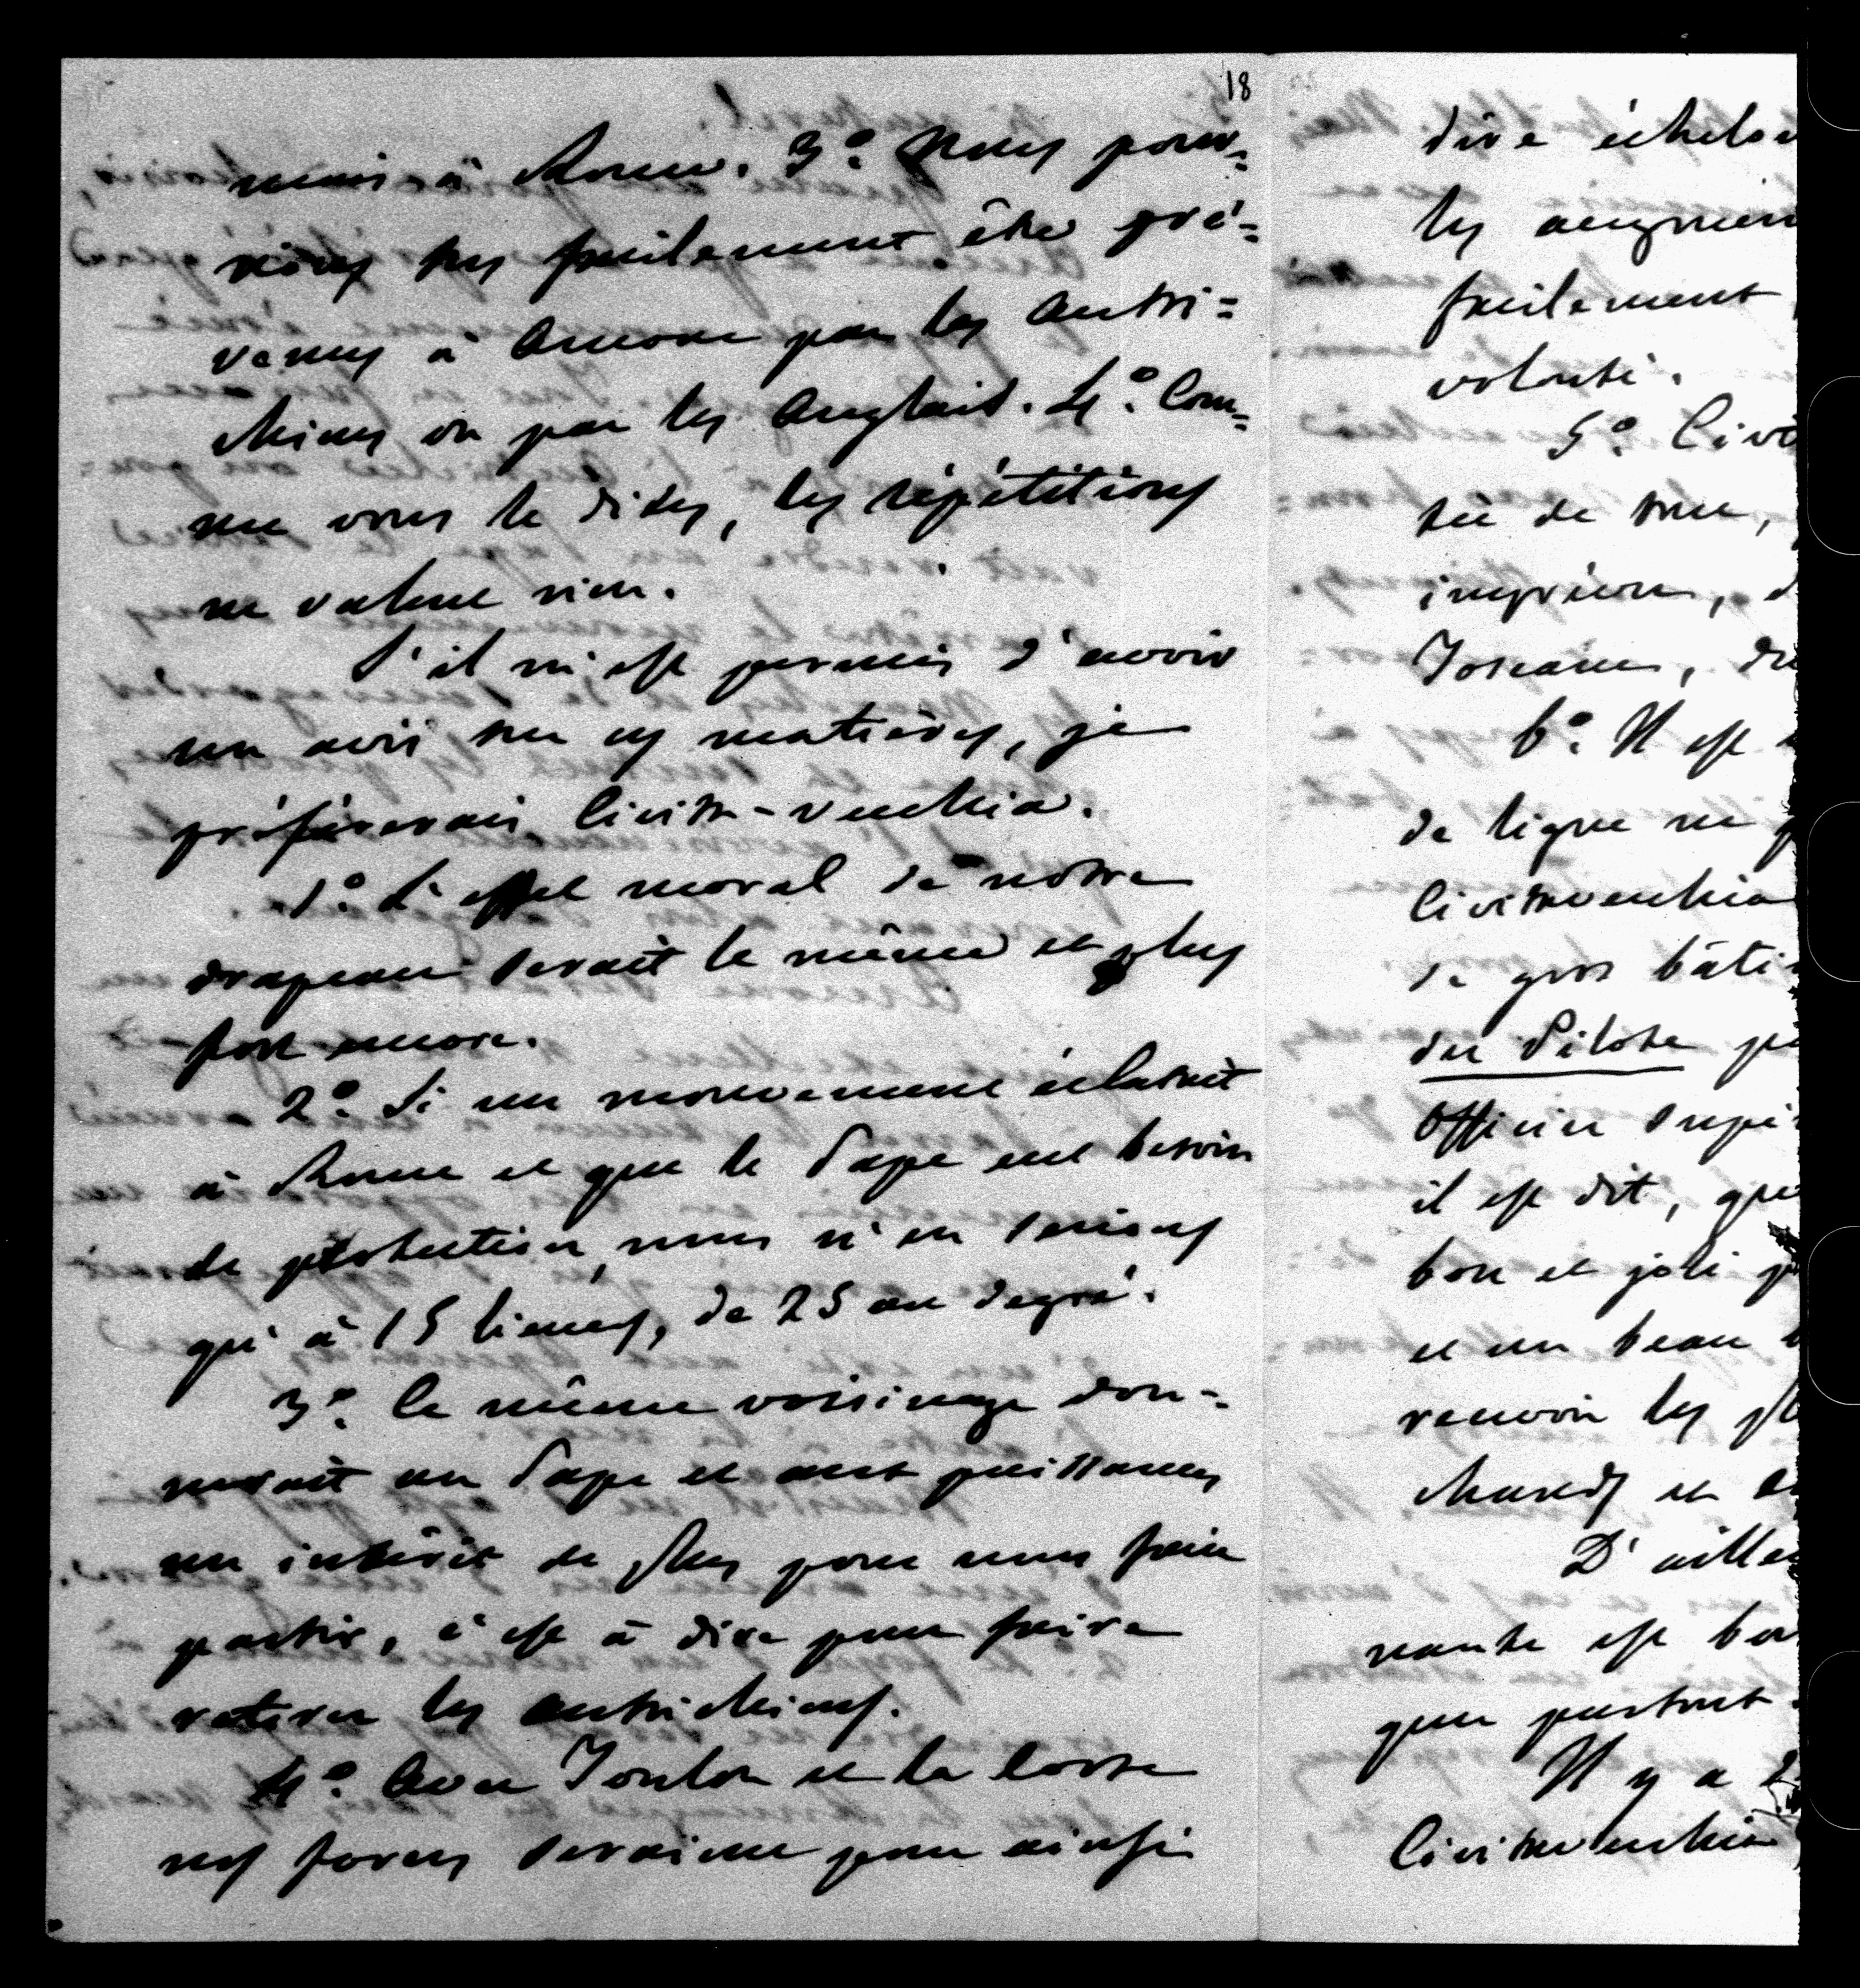 18
mais à Rome. 3º. Nous pour=
rions très facilement être pré=
venus à Ancone par les Autri=
chiens ou par les Anglais. 4º. Com=
me vous le dites, les répétitions
ne valent rien.
S'il m'est permis d'avoir
un avis sur ces matières, je
préférerais Civita-vecchia.
1º. L'effet moral de notre
drapeau serait le même et plus
fort encore.
2º. Si un mouvement éclatait
à Rome et que le Pape eut besoin
de protection, nous n'en serions
qu'à 15 lieues, de 25 au degré.
3º. Ce même voisinage don-
nerait au Pape et aux puissances
un intérêt de plus pour nous faire
partir, c'est à dire pour faire
retirer les autrichiens.
4º. Avec Toulon et la Corse
nos forces seraient pour ainsi
dire échelon
les augmen
facilement
volonté.
5º. Civi
tée de mer,
ingrieure, d
Toscane, du
6º. Il est
de ligne ne p
Civitavecchia
de gros bâti
du Pilote pa
Officier supé
il est dit, que
bon et joli p
et un beau b
recevoir les pl
chands et
D'aille
rante est bo
que partout
Il y a 2
Civitavecchia